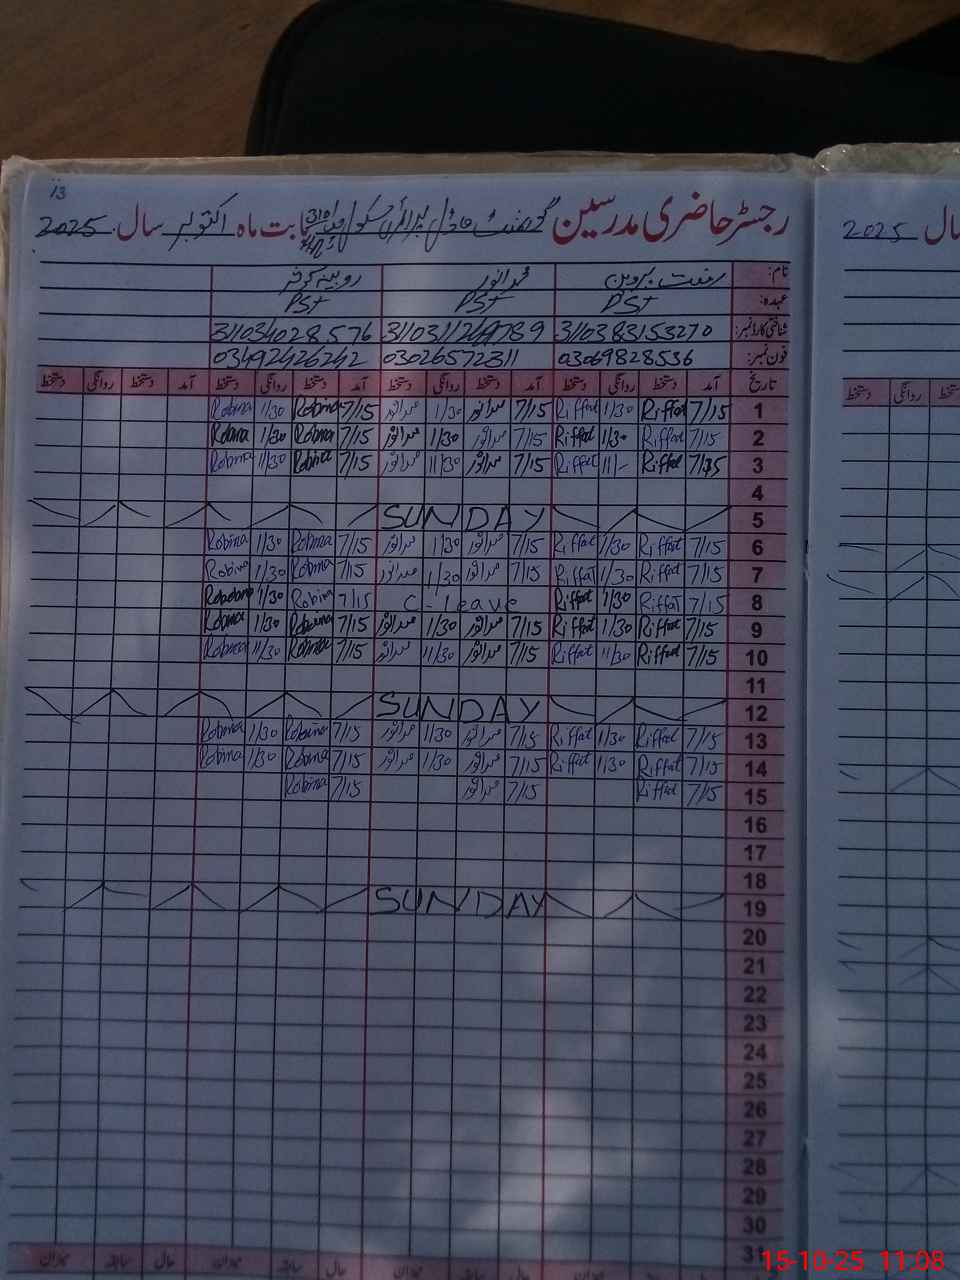 13
رجسٹر حاضری مدرسین گورنمنٹ ماڈل پرائمری سکول بابت ماہ اکتوبر سال 2025
نام: رفعت پروین محمد انور روبینہ کوثر
عہدہ: PST PST PST
شناختی کارڈ نمبر: 3110383153270 3110311269789 311034028576
فون نمبر: 03069828536 03026572311 03492426242
تاریخ آمد دستخط روانگی دستخط آمد دستخط روانگی دستخط آمد دستخط روانگی دستخط آمد دستخط روانگی دستخط
1 7/15 Riffat 1/30 Riffat 7/15 محمد انور 1/30 محمد انور 7/15 Robina 1/30 Robina
2 7/15 Riffat 1/30 Riffat 7/15 محمد انور 1/30 محمد انور 7/15 Robina 1/30 Robina
3 7/15 Riffat 11/- Riffat 7/15 محمد انور 11/30 محمد انور 7/15 Robina 11/30 Robina
4
5 SUNDAY
6 7/15 Riffat 1/30 Riffat 7/15 محمد انور 1/30 محمد انور 7/15 Robina 1/30 Robina
7 7/15 Riffat 1/30 Riffat 7/15 محمد انور 1/30 محمد انور 7/15 Robina 1/30 Robina
8 7/15 Riffat 1/30 Riffat C-leave 7/15 Robina 1/30 Robina
9 7/15 Riffat 1/30 Riffat 7/15 محمد انور 1/30 محمد انور 7/15 Robina 1/30 Robina
10 7/15 Riffat 11/30 Riffat 7/15 محمد انور 11/30 محمد انور 7/15 Robina 11/30 Robina
11
12 SUNDAY
13 7/15 Riffat 1/30 Riffat 7/15 محمد انور 1/30 محمد انور 7/15 Robina 1/30 Robina
14 7/15 Riffat 1/30 Riffat 7/15 محمد انور 1/30 محمد انور 7/15 Robina 1/30 Robina
15 7/15 Riffat 7/15 محمد انور 7/15 Robina
16
17
18
19 SUNDAY
20
21
22
23
24
25
26
27
28
29
30
31
حال سابقہ میزان حال سابقہ میزان حال سابقہ میزان
سال 2025
دستخط روانگی دستخط
15-10-25 11:08